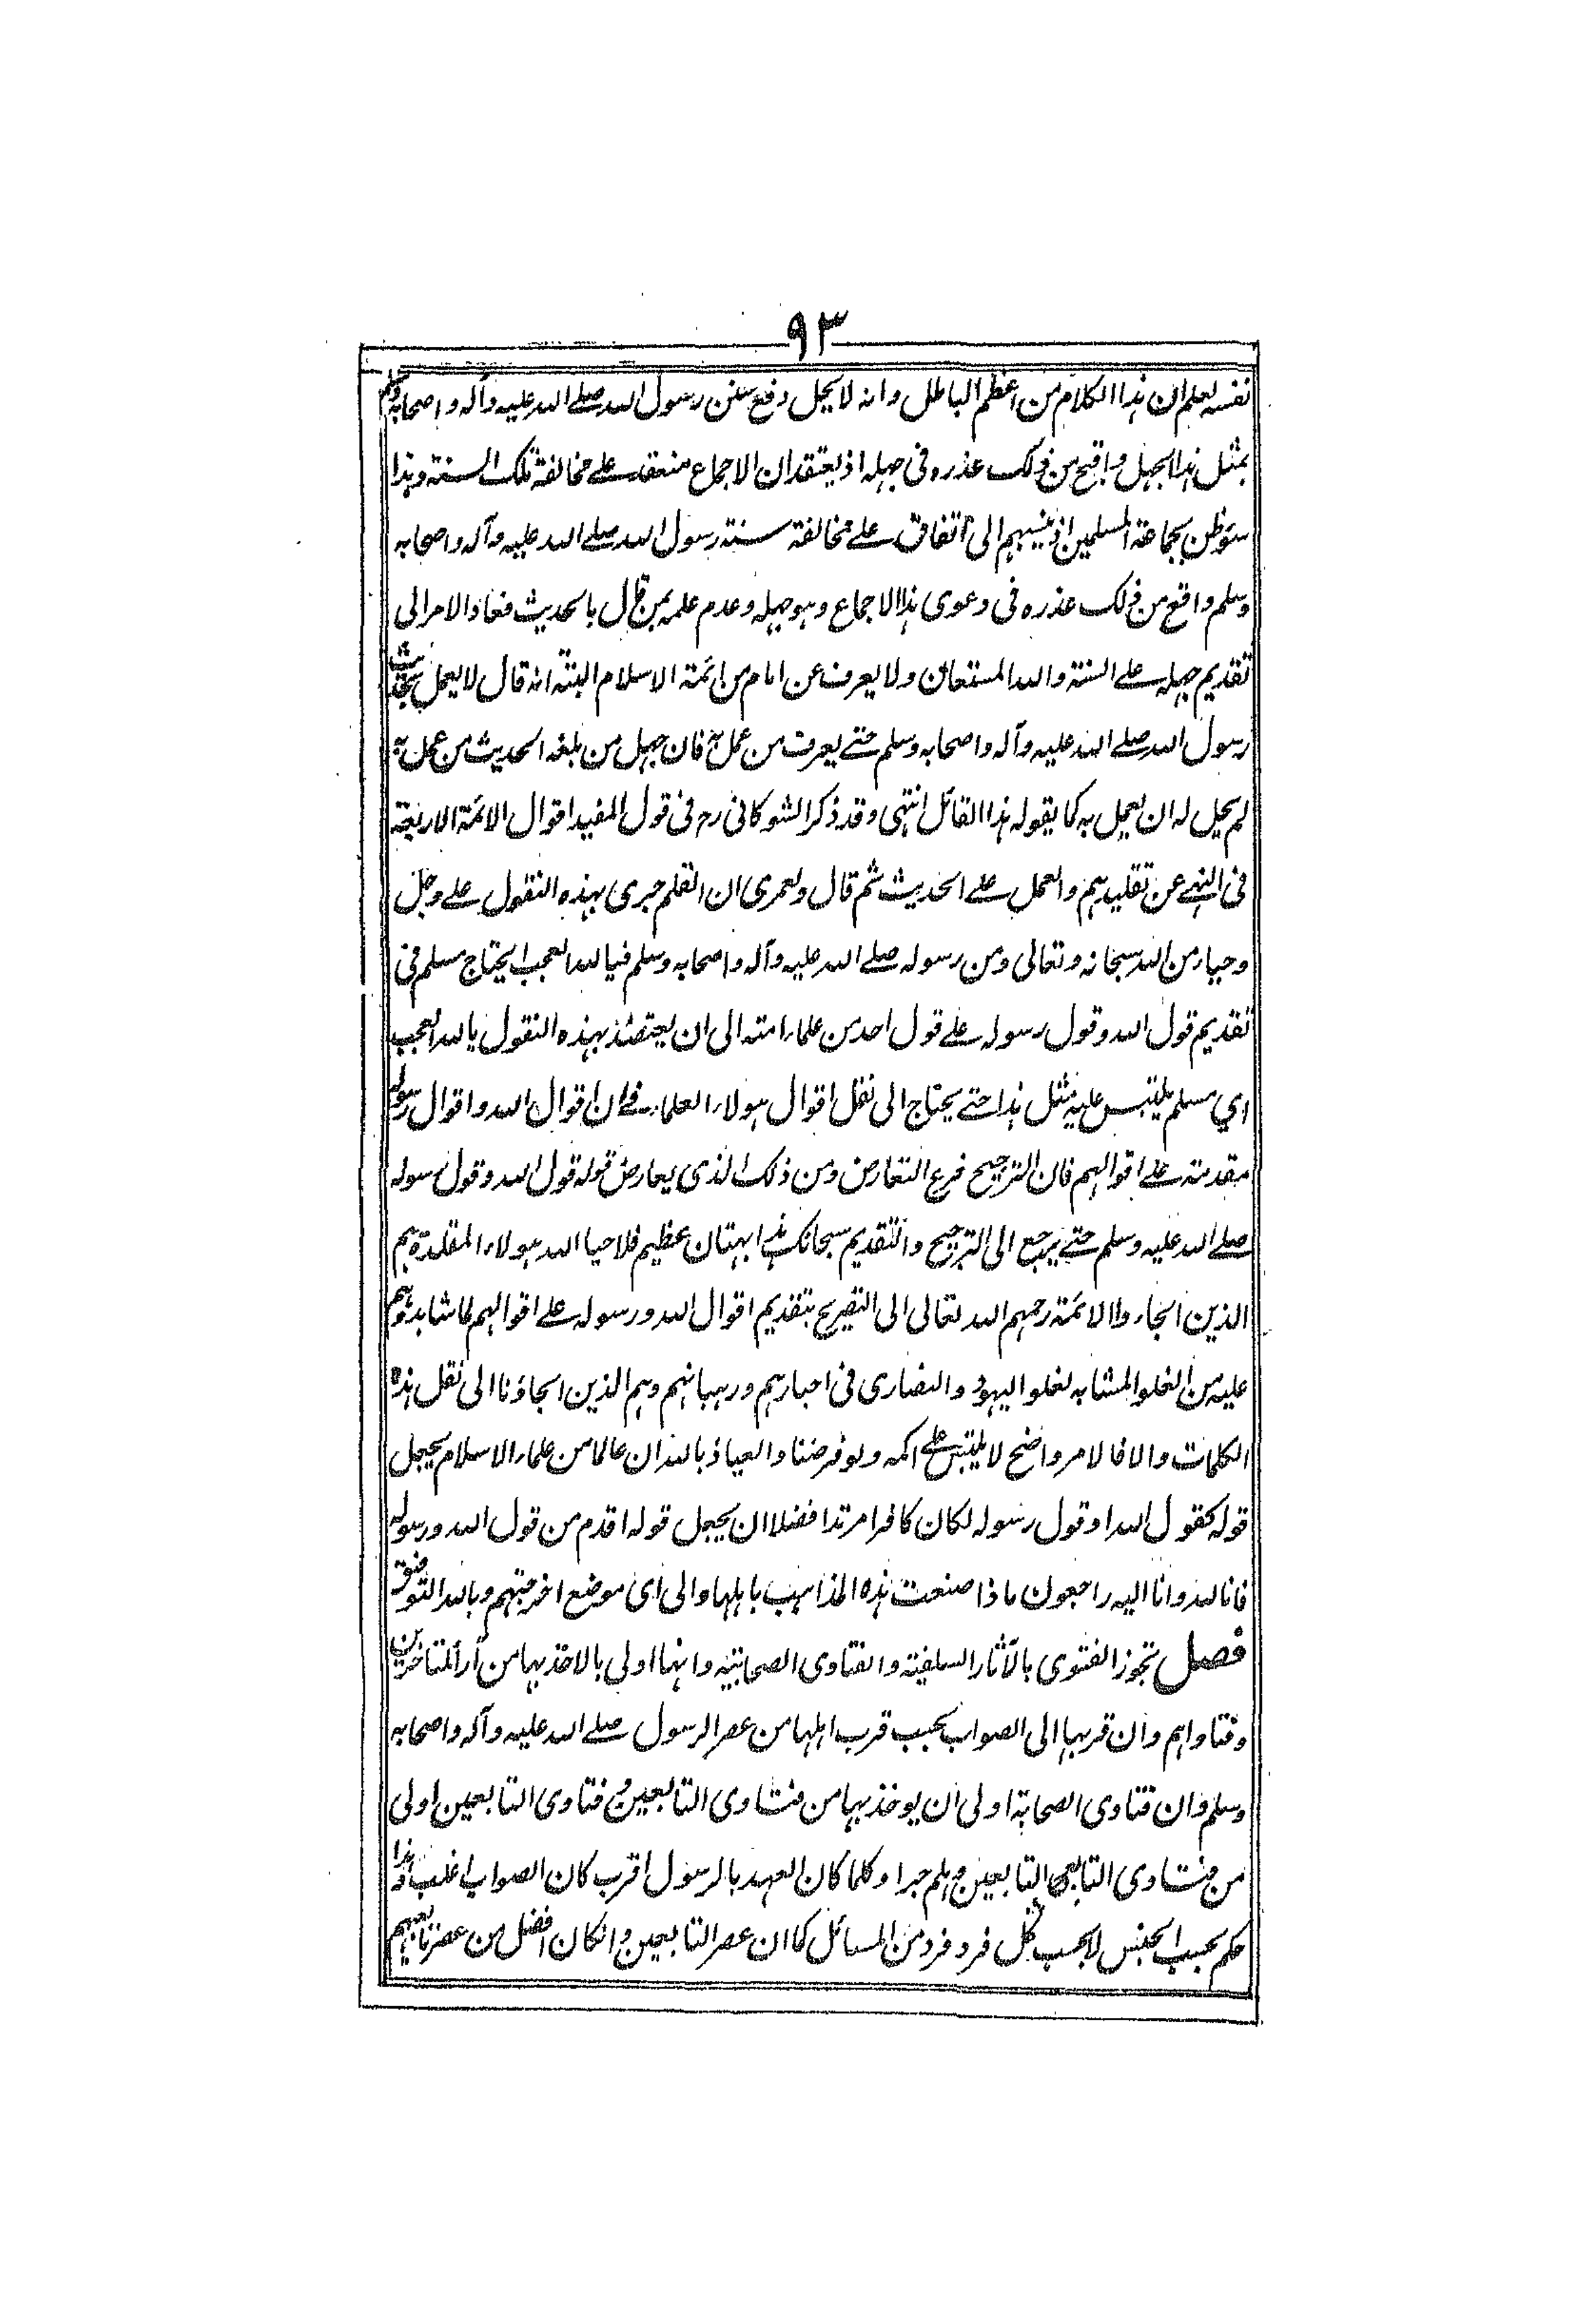 ٩٣
نفسه لعلم ان هذا الكلام من اعظم الباطل وانه لا يحل دفع سنن رسول الله صلے الله عليه وآله واصحابه وسلم
بمثل هذا الجهل واقبح من ذلك عذره فى جهله اذ يعتقد ان الاجماع منعقد علے مخالفة تلك السنة وهذا
سوءظن بجماعة المسلمين اذ ينسبهم الى اتفاق علے مخالفة سنة رسول الله صلے الله عليه وآله واصحابه
وسلم واقبح من ذلك عذره فى دعوى هذا الاجماع وهو جهله وعدم علمه بمن قال بالحديث فعاد الامر الى
تقديم جهله علے السنة والله المستعان ولا يعرف عن امام من ائمة الاسلام البتة انه قال لا يعمل بحديث
رسول الله صلے الله عليه وآله واصحابه وسلم حتے يعرف من عمل به فان جهل من بلغه الحديث من عمل به
لم يحل له ان يعمل به كما يقوله هذا القائل انتهى وقد ذكر الشوكانى رح فى قول المفيد اقوال الائمة الاربعة
فى النهے عن تقليدهم والعمل علے الحديث ثم قال ولعمرى ان القلم جرى بهذه النقول علے وجل
وحياء من الله سبحانه وتعالى ومن رسوله صلے الله عليه وآله واصحابه وسلم فيالله العجب ايحتاج مسلم فى
تقديم قول الله وقول رسوله علے قول احد من علماء امته الى ان يعتضد بهذه النقول يالله العجب
اي مسلم يلتبس عليه مثل هذا حتے يحتاج الى نقل اقوال هولاء العلماء فے ان اقوال الله واقوال رسوله
مقدمة علے اقوالهم فان الترجيح فرع التعارض ومن ذلك الذى يعارض قوله قول الله وقول رسوله
صلے الله عليه وسلم حتے يرجع الى الترجيح والتقديم سبحانك هذا بهتان عظيم فلا حيا الله هولاء المقلدة هم
الذين الجاءوا الائمة رحمهم الله تعالى الى التصريح بتقديم اقوال الله ورسوله علے اقوالهم لما شاهدوهم
عليه من الغلو المشابه لغلو اليهود والنصارى فى احبارهم ورهبانهم وهم الذين الجاؤنا الى نقل هذه
الكلمات والا فالامر واضح لا يلتبس علے اكمه ولو فرضنا والعياذ بالله ان عالما من علماء الاسلام يجعل
قوله كقول الله او قول رسوله لكان كافرا مرتدا فضلا ان يجعل قوله اقدم من قول الله ورسوله
فانا لله وانا اليه راجعون ماذا صنعت هذه المذاهب باهلها والى اى موضع اخرجتهم وبالله التوفيق
فصل تجوز الفتوى بالآثار السلفية والفتاوى الصحابتيه وانها اولى بالاخذ بها من آراء المتاخرين
وفتاواهم وان قربها الى الصواب بحسب قرب اهلها من عصر الرسول صلے الله عليه وآله واصحابه
وسلم وان فتاوى الصحابة اولى ان يوخذ بها من فتاوى التابعين وفتاوى التابعين اولى
من فتاوى التابعى التابعين وهلم جرا وكلما كان العهد بالرسول اقرب كان الصواب اغلب وهذا
حكم بحسب الجنس لا بحسب كل فرد فرد من المسائل كما ان عصر التابعين وانكان افضل من عصر تابعيهم